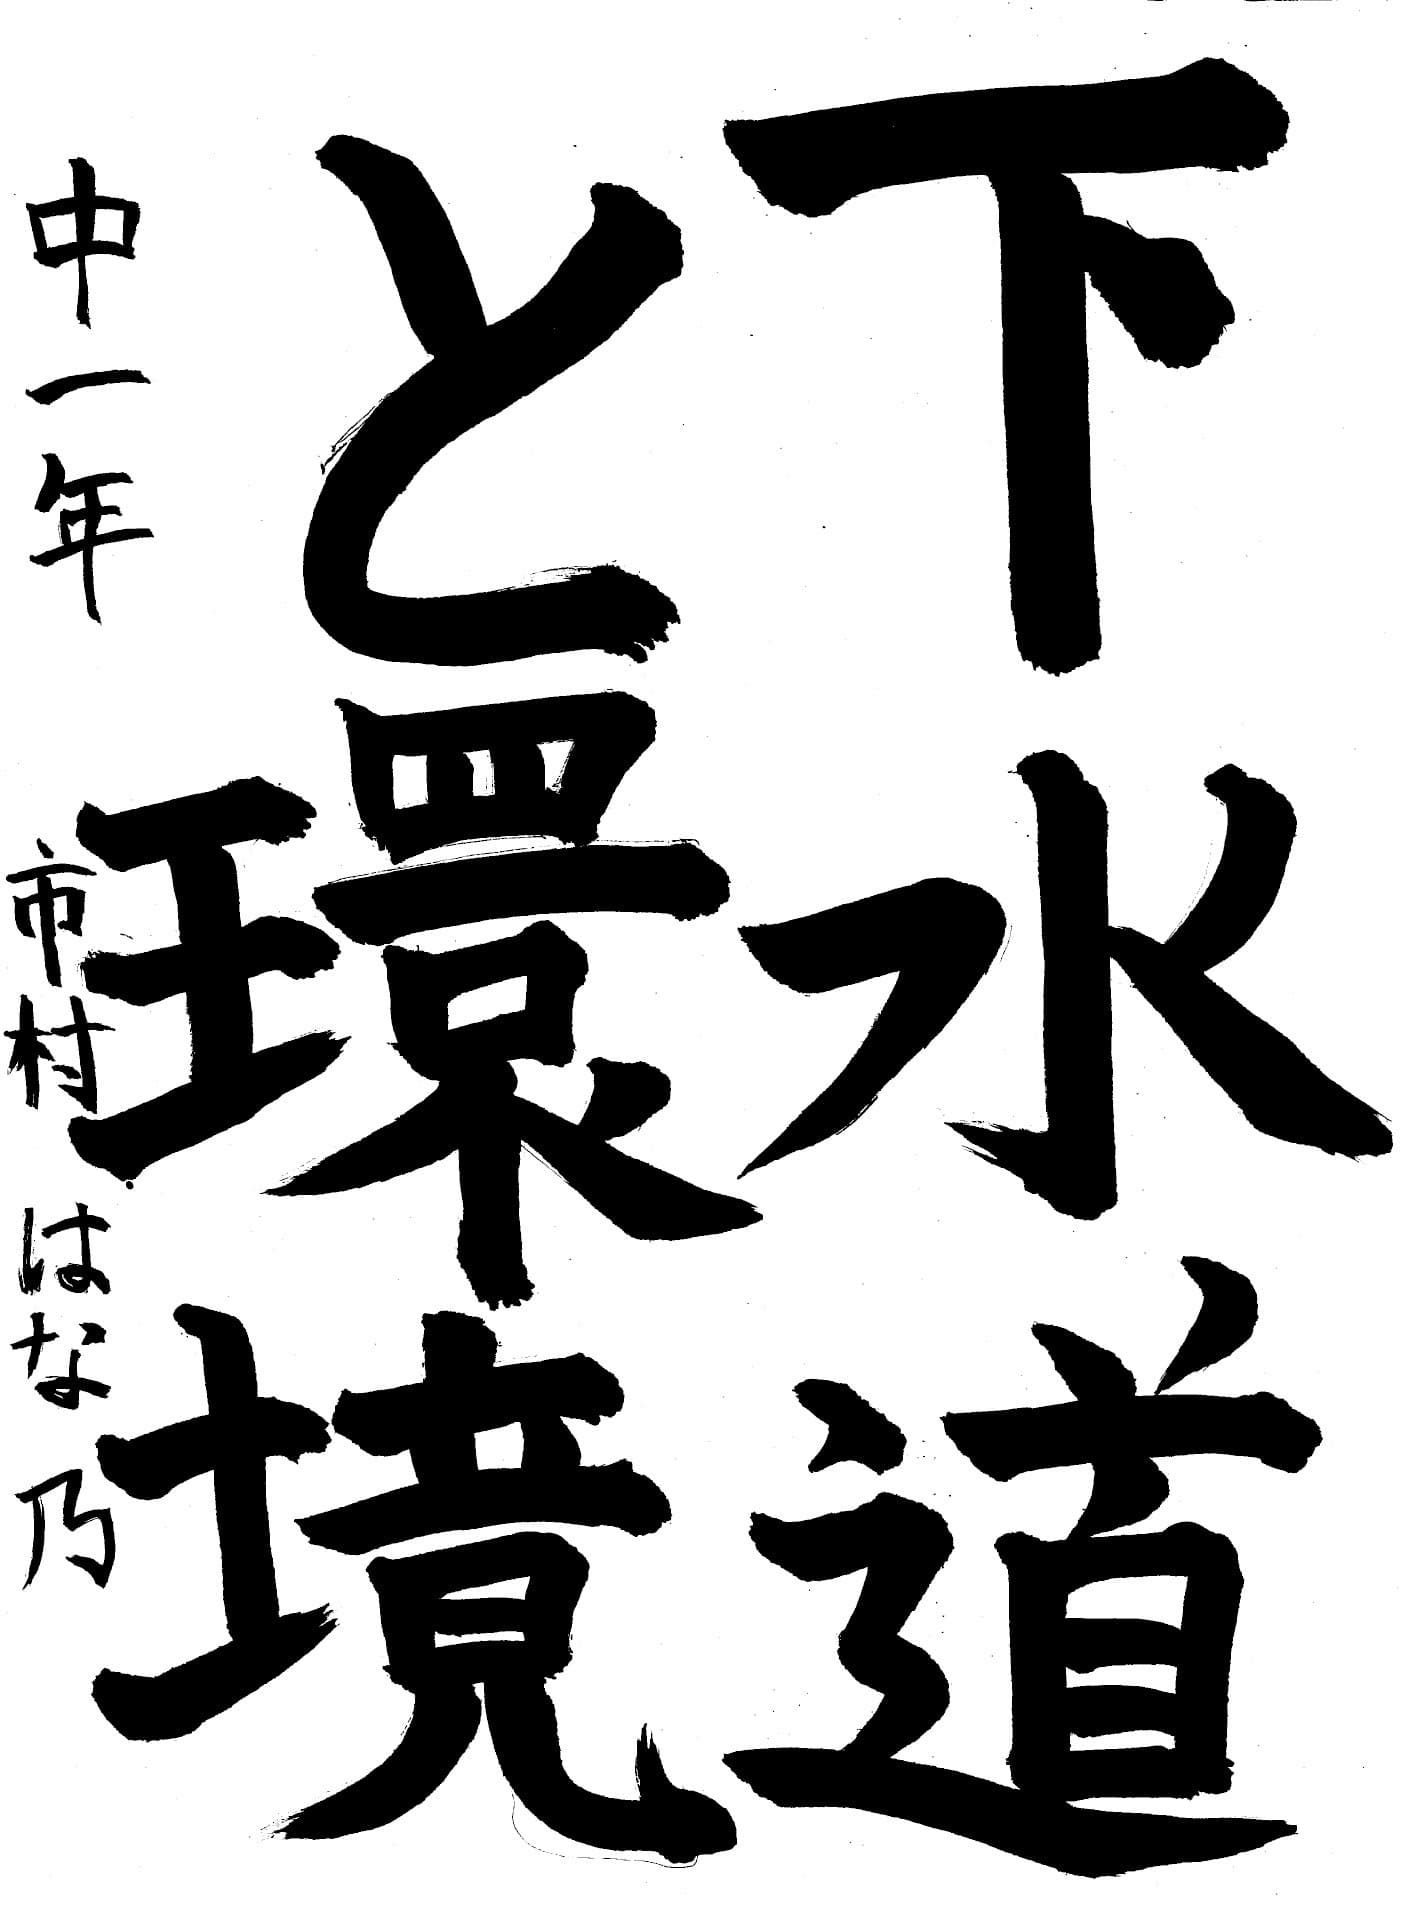 下水道
と環境
中一年 市村 はな乃